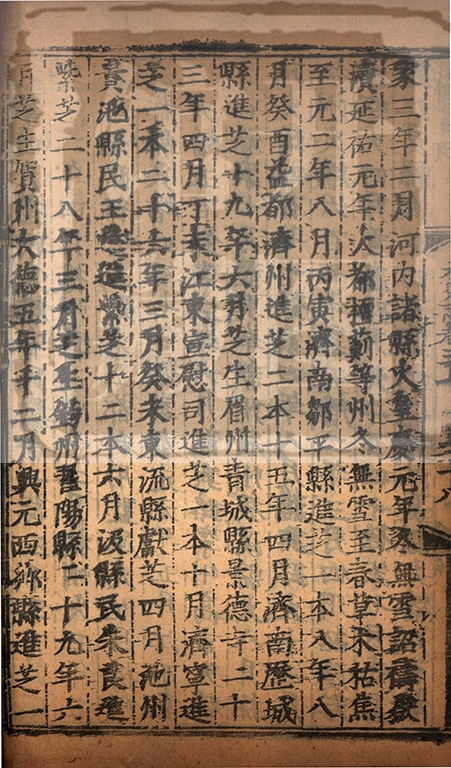 家三年二月河內諸縣火皇慶元年冬無雪詔禱嶽
瀆延祐元年大都檀薊等州冬無雪至春草木枯焦
至元二年八月丙寅濟南鄒平縣進芝一本八年八
月癸酉益都濟州進芝二本十五年四月濟南歷城
縣進芝十九年六月芝生眉州青城縣景德寺二十
三年四月丁未江東宣慰司進芝一本十月濟寧進
芝一本二十六年三月癸未東流縣獻芝四月池州
貴池縣民王進紫芝十二本六月汲縣民朱良進
紫芝二十八年三月芝生州陽縣二十九年六
月芝生賀州大德五年十二月興元西鄉縣進芝一